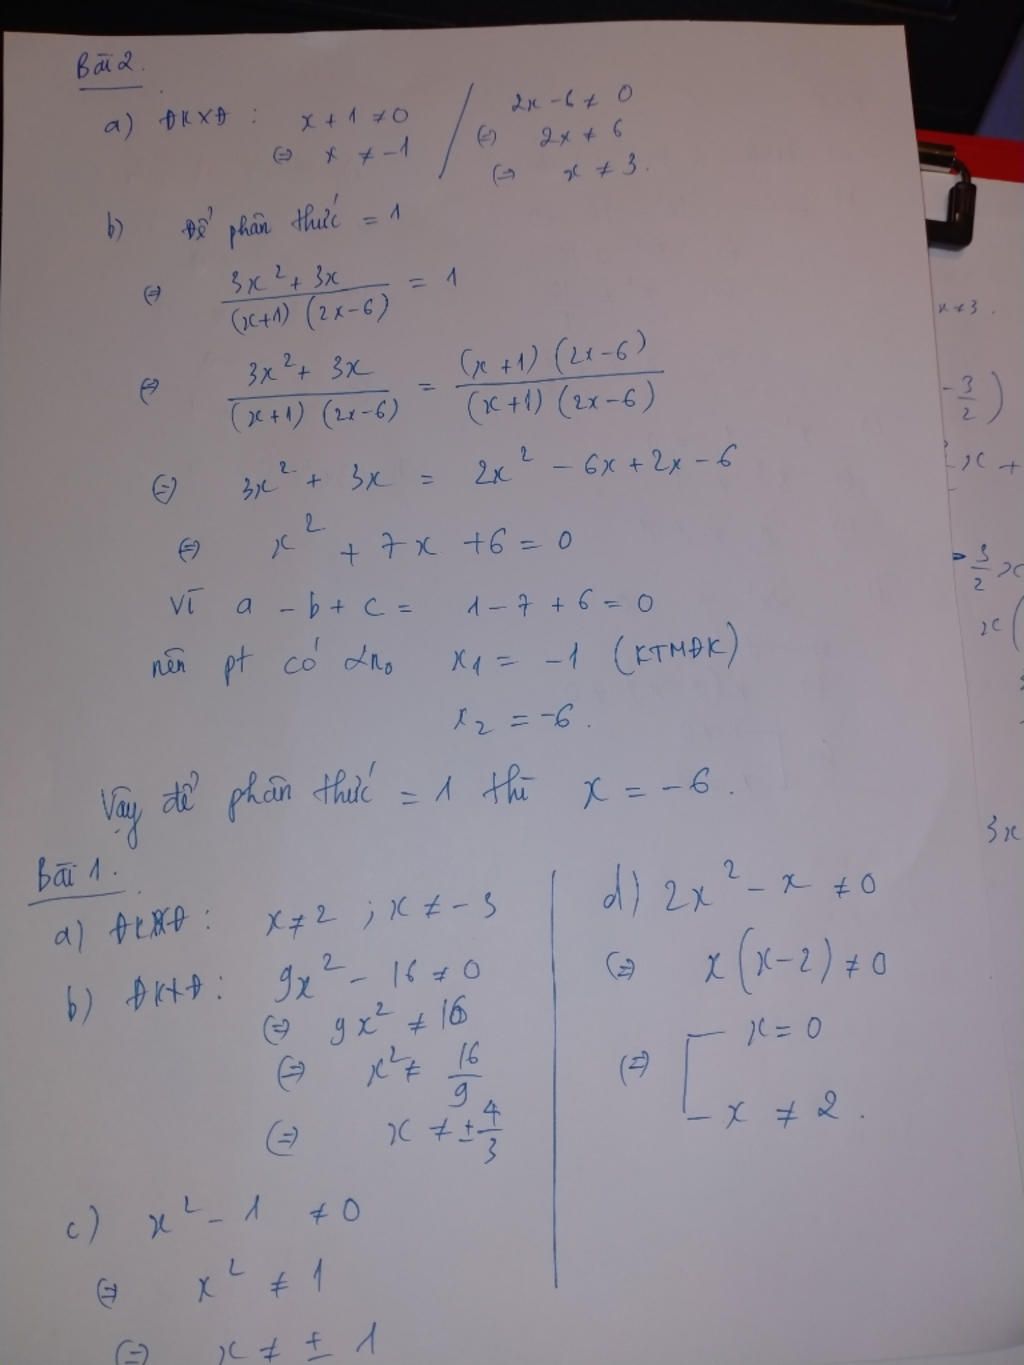 Bài 2.
a) ĐKXĐ : x + 1 ≠ 0 / 2x - 6 ≠ 0
⇔ x ≠ -1 ⇔ 2x ≠ 6
⇔ x ≠ 3.
b) Để phân thức = 1
⇔ (3x² + 3x)/((x+1)(2x-6)) = 1
⇔ (3x² + 3x)/((x+1)(2x-6)) = ((x+1)(2x-6))/((x+1)(2x-6))
⇔ 3x² + 3x = 2x² - 6x + 2x - 6
⇔ x² + 7x + 6 = 0
Vì a - b + c = 1 - 7 + 6 = 0
nên pt có 2no x₁ = -1 (KTMĐK)
x₂ = -6.
Vậy để phân thức = 1 thì x = -6.
Bài 1.
a) ĐKXĐ : x ≠ 2 ; x ≠ -3
b) ĐKXĐ : 9x² - 16 ≠ 0
⇔ 9x² ≠ 16
⇔ x² ≠ 16/9
⇔ x ≠ ± 4/3
c) x² - 1 ≠ 0
⇔ x² ≠ 1
⇔ x ≠ ± 1
d) 2x² - x ≠ 0
⇔ x(x-2) ≠ 0
⇔ [ x = 0
x ≠ 2.
x ≠ 3.
- 3/2)
x +
3/2 x
x(
3x